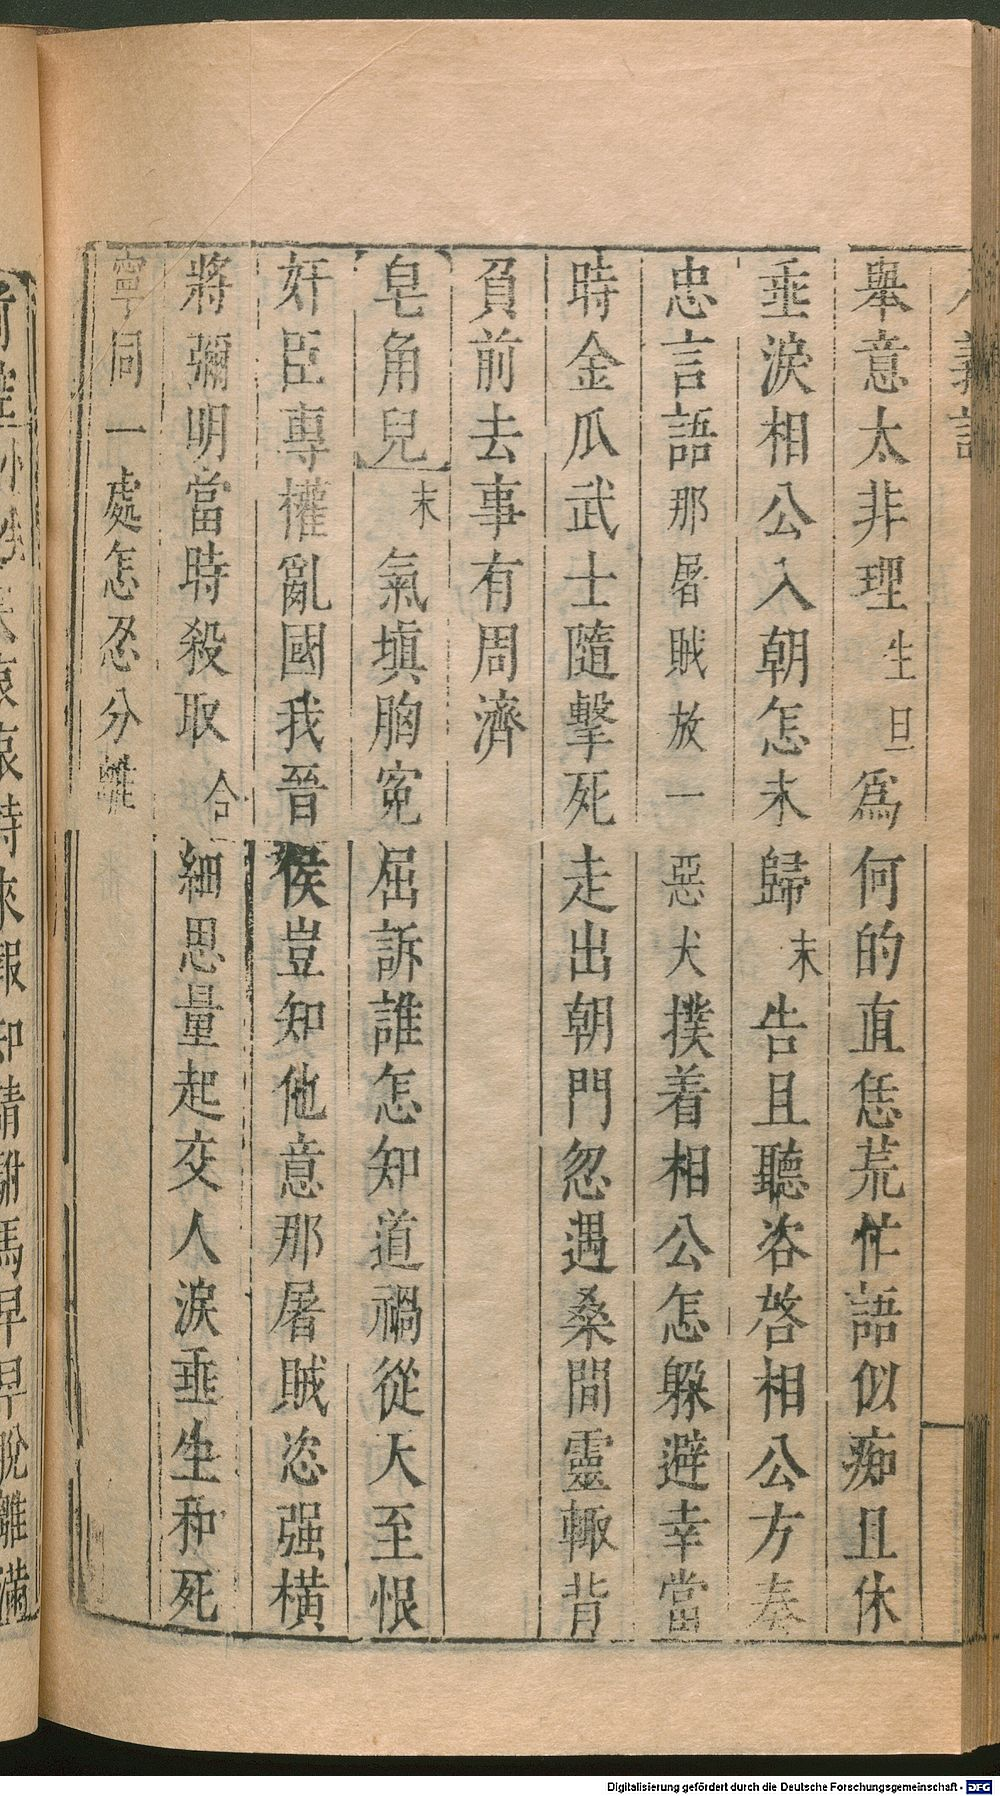 八義記
舉意太非理生旦爲何的直恁荒忙語似痴且休
垂淚相公入朝怎未歸末告且聽咨啓相公方奏
忠言語那屠賊放一惡犬撲着相公怎躲避幸當
時金瓜武士隨擊死走出朝門忽遇桑間靈輙背
負前去事有周濟
皂角兒末氣塡胸寃屈訴誰怎知道禍從天至恨
奸臣專權亂國我晉侯豈知他意那屠賊恣强橫
將彌明當時殺取合細思量起交人淚垂生和死
寧同一處怎忍分離
哀哀特來報知請駙馬早早脫離滿
Digitalisierung gefördert durch die Deutsche Forschungsgemeinschaft - DFG